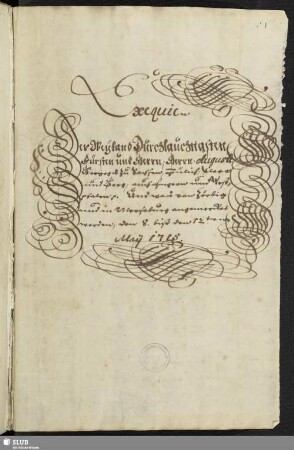 Exequien
Der Weyland Durchlauchtigsten
Fürsten und Herrn, Herrn Augusti
Herzogs zu Sachsen, Jülich, Cleve
und Berg, auch Engern und West-
phalen p. Und was von Zörbig
und in Merseburg angemercket
worden, den 8. biß den 12ten
May 1715
SLUB